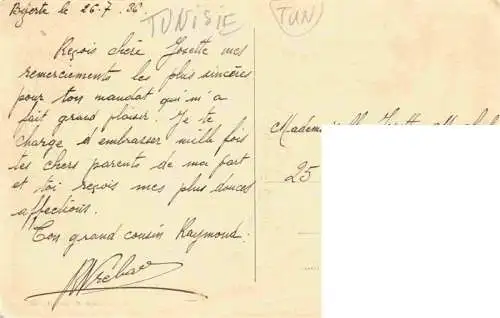 Bizerte le 26.7.36
TUNISIE
TUNI
Reçois chère Josette mes
remerciements les plus sincères
pour ton mandat qui m'a
fait grand plaisir. Je te
charge d'embrasser mille fois
tes chers parents de ma part
et toi reçois mes plus douces
affections.
Ton grand cousin Raymond.
Mademoiselle Josette
25